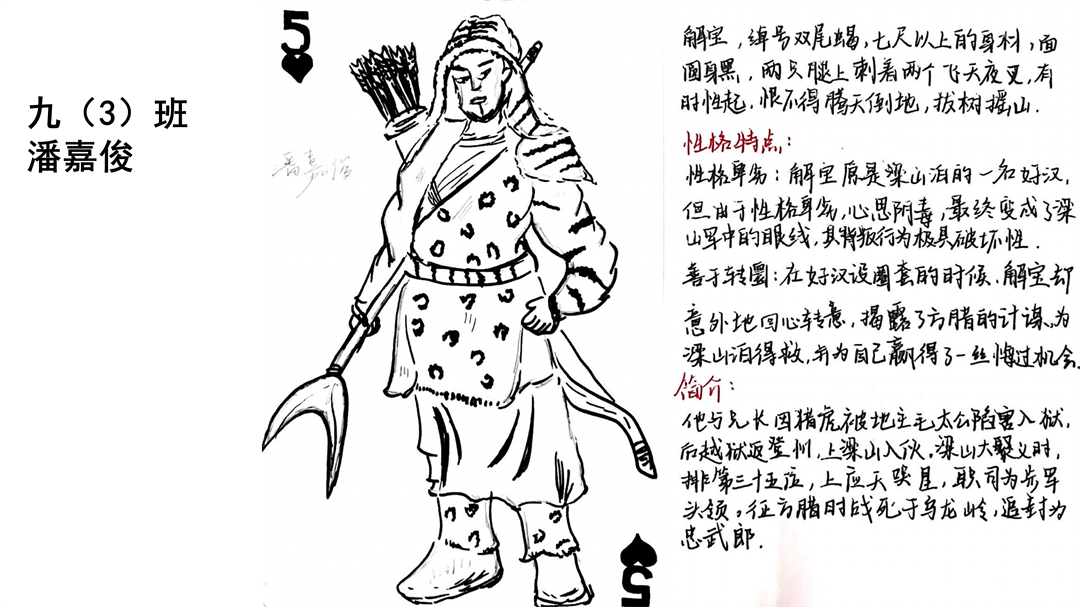 九（3）班
潘嘉俊
5
潘嘉俊
解宝，绰号双尾蝎，七尺以上的身材，面
圆身黑，两只腿上刺着两个飞天夜叉，有
时性起，恨不得腾天倒地，拔树摇山．
性格特点：
性格卑劣：解宝原是梁山泊的一名好汉，
但由于性格卑劣，心思阴毒，最终变成了梁
山军中的眼线，其背叛行为极具破坏性．
善于转圜：在好汉设圈套的时候，解宝却
意外地回心转意，揭露了方腊的计谋，为
梁山泊得救，并为自己赢得了一丝悔过机会．
简介：
他与兄长因猎虎被地主毛太公陷害入狱，
后越狱返登州，上梁山入伙。梁山大聚义时，
排第三十五位，上应天哭星，职司为步军
头领。征方腊时战死于乌龙岭，追封为
忠武郎．
5